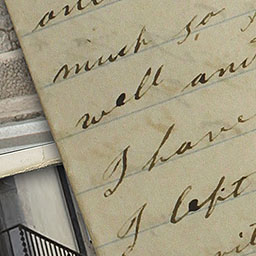 and
much so
well and
I have
I left